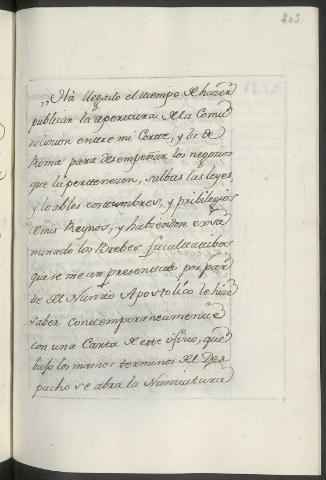 203.
,, Hà llegado el tiempo de hazer
publicar la apertura de la Comu
nicacion entre mi Corte, y la de
Roma para desempeñar los negocios
que la pertenezen, salbas las leyes,
y loables costumbres, y pribilegios
de mis Reynos; y habiendose exsa
minado los Brebes facultatibos
que se me an presentado por par
te del Nunzio Apostolico le hize
saber contemporaneamente
con una Carta de este ofizio, que
bajo los mismos terminos del Des
pacho se abra la Nunziatura